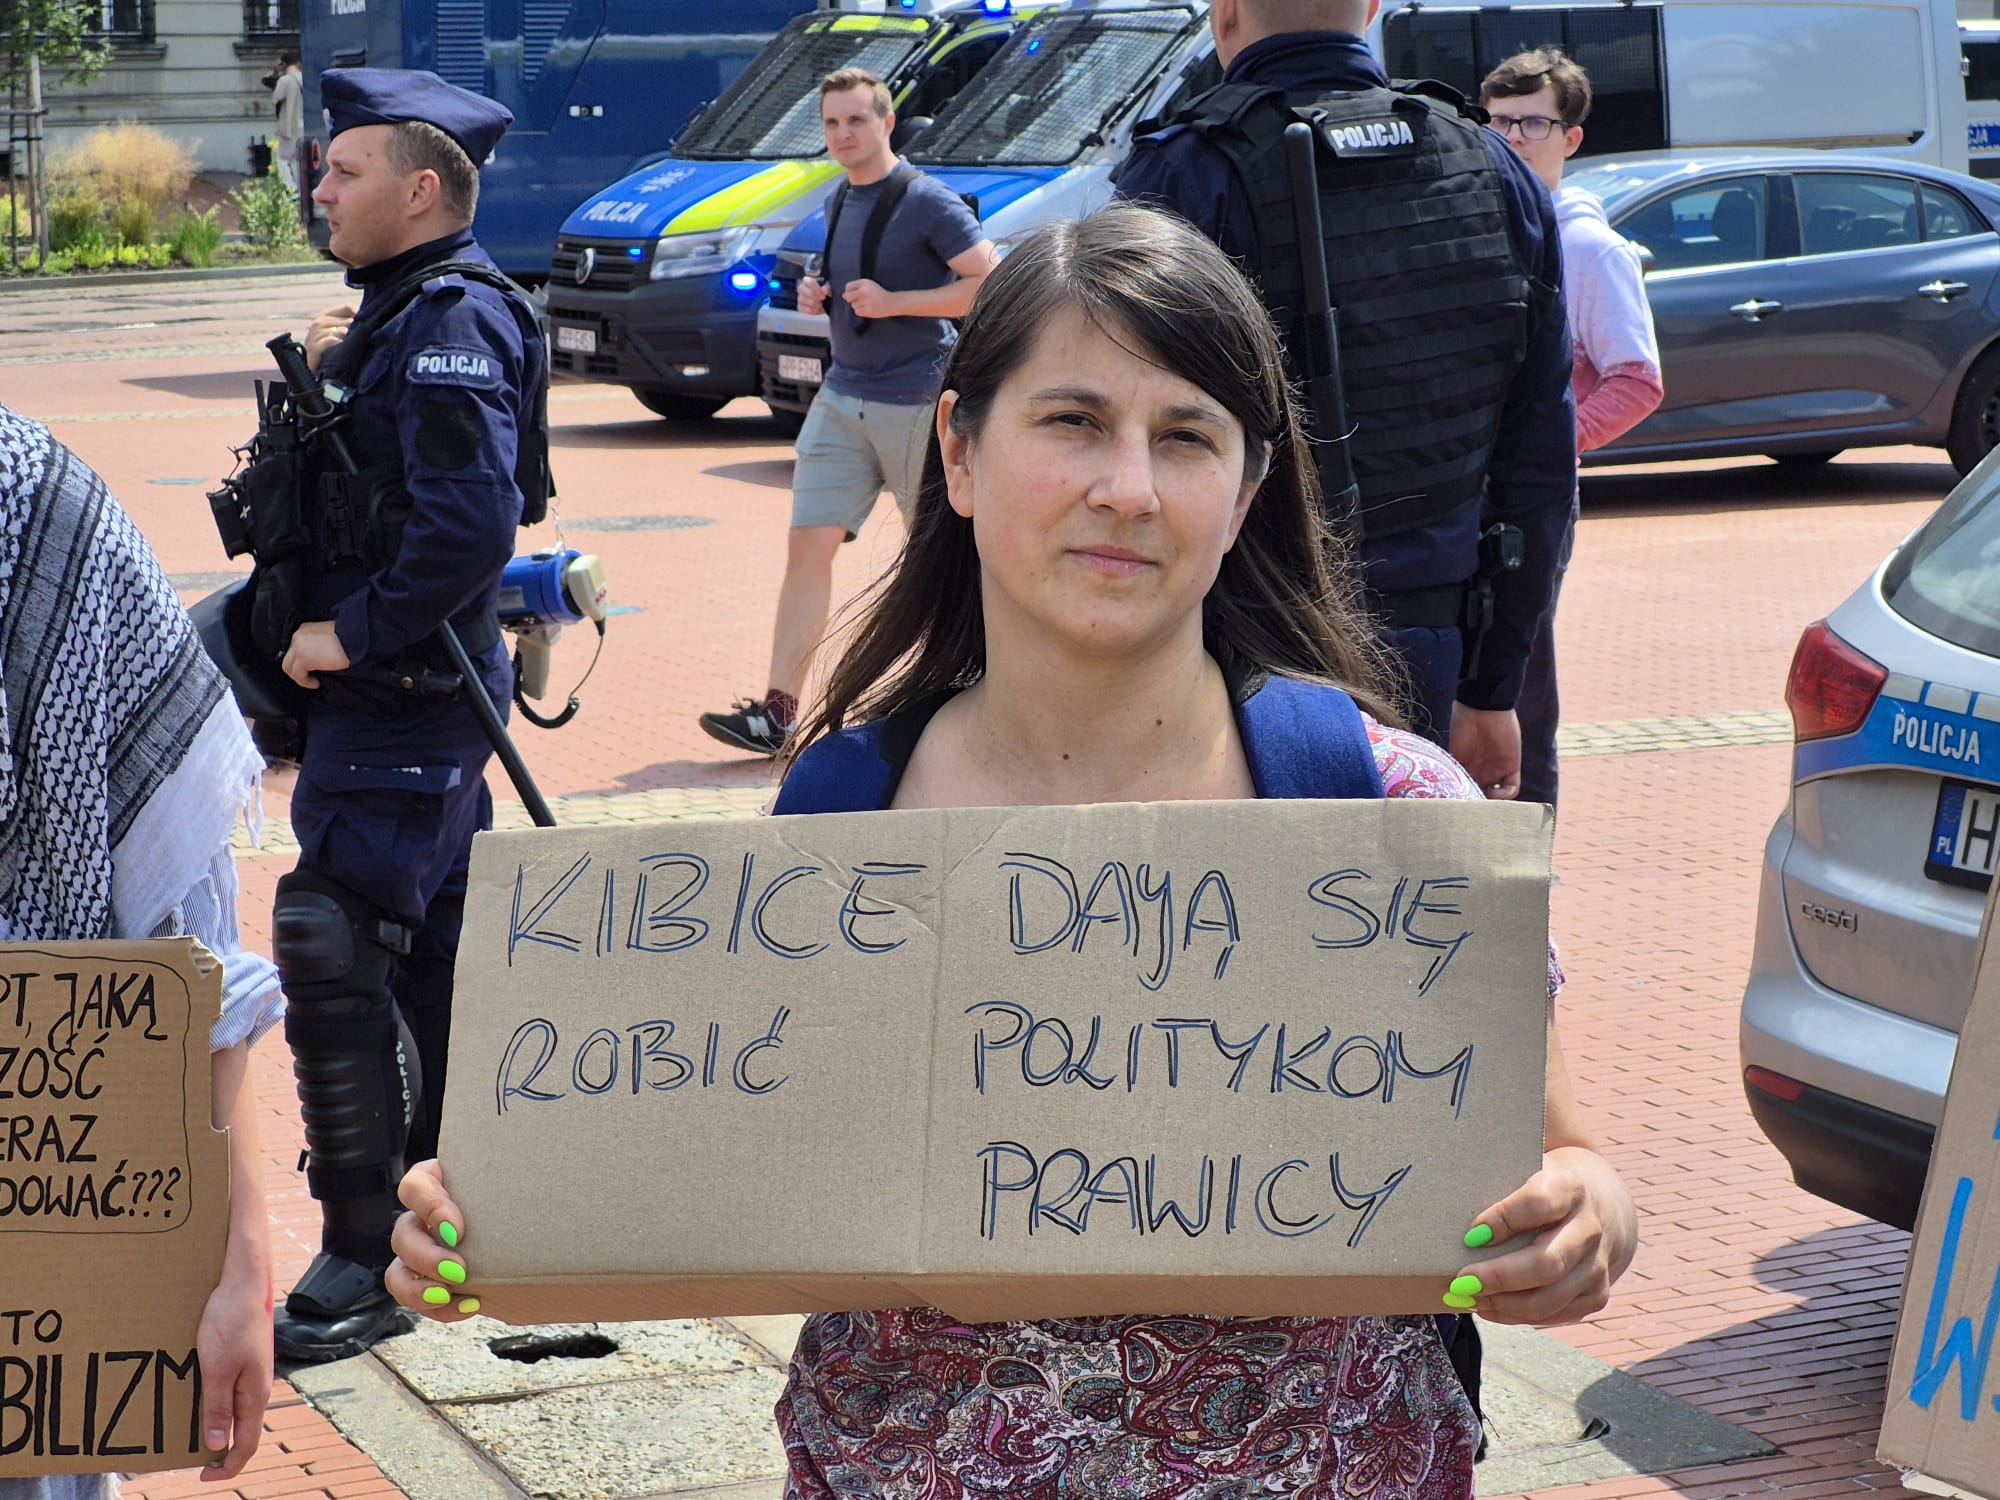 POLICJA
POLICJA
POLICJA
POLICJA
POLICJA
POLICJA
PL H
cee'd
KIBICE DAJĄ SIĘ
ROBIĆ POLITYKOM
PRAWICY
JAKĄ
ZOŚĆ
ERAZ
DOWAĆ???
TO
BILIZM